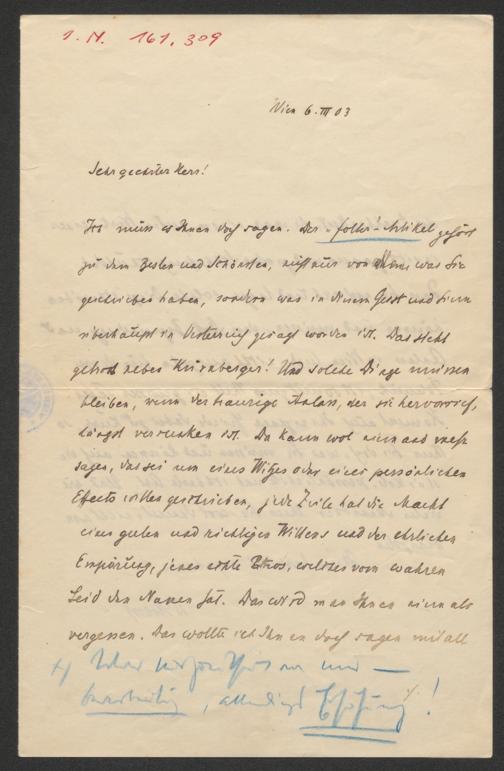 I. N. 161.309
Wien 6. III 03
Sehr geehrter Herr!
Ich muss es Ihnen doch sagen. Der "Folter"-Artikel gehört
zu dem Besten und Schönsten, nicht nur von dem, was Sie
geschrieben haben, sondern was in diesem Geist und Sinn
überhaupt in Oesterreich gesagt worden ist. Das steht
getrost neben Kürnberger! Und solche Dinge müssen
bleiben, wenn der traurige Anlass, der sie hervorrief,
längst versunken ist. Da kann wol niemand mehr
sagen, das sei um eines Witzes oder eines persönlichen
Effects willen geschrieben, jede Zeile hat die Macht
eines guten und richtigen Willens und der ehrlichen
Empörung, jenes echte Pathos, welches vom wahren
Leid den Namen hat. Das wird man Ihnen niemals
vergessen. Das wollte ich Ihnen doch sagen mit all